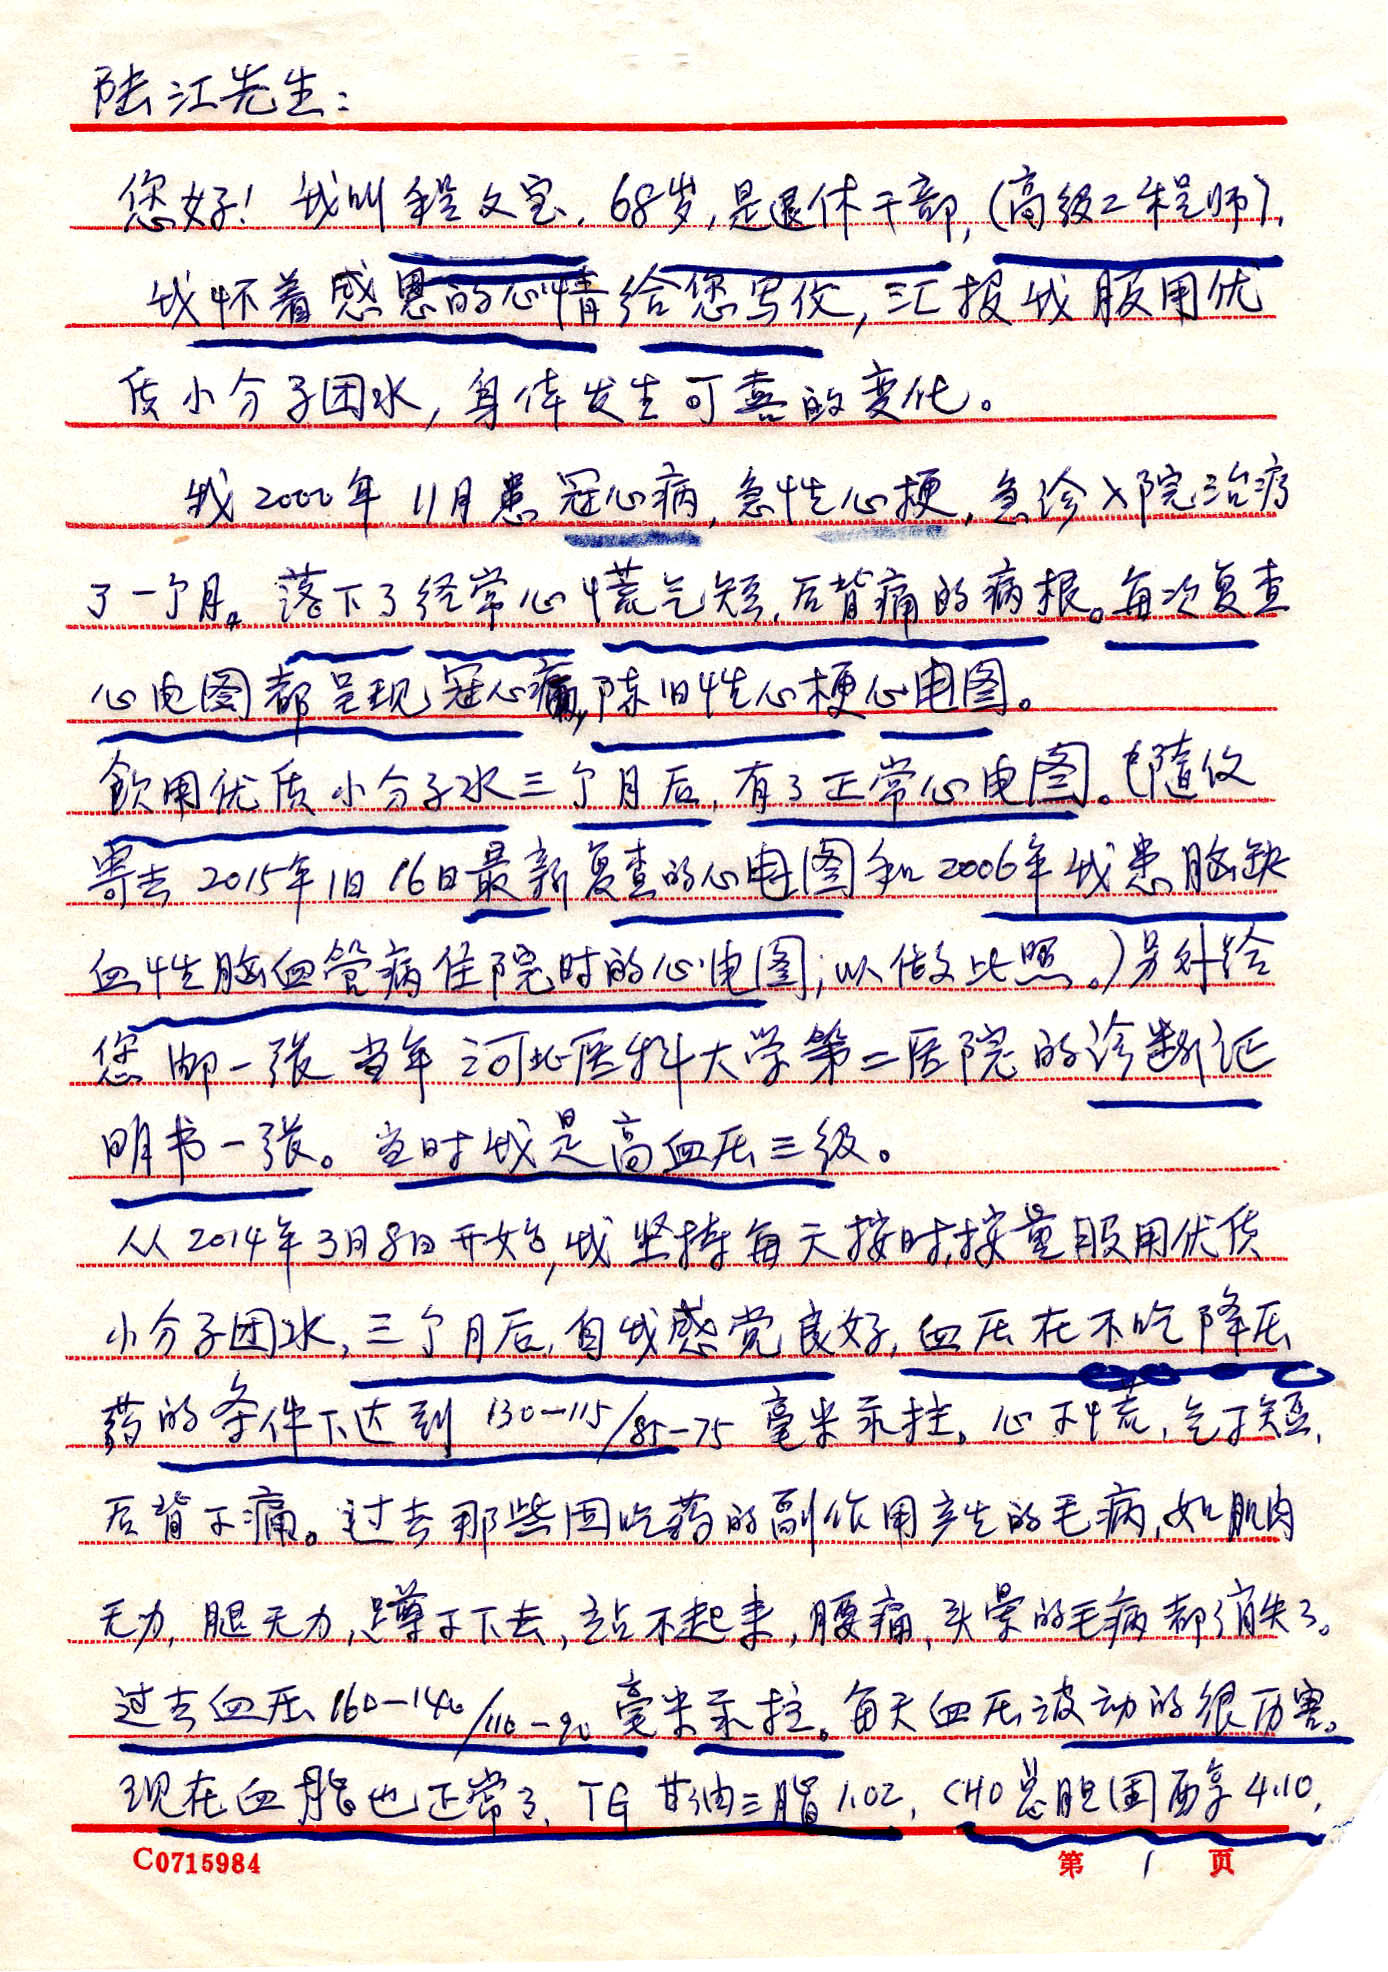 陆江先生：
您好！我叫程文宝，68岁，是退休干部，(高级工程师)，
我怀着感恩的心情给您写信，汇报我服用优
质小分子团水，身体发生可喜的变化。
我2000年11月患冠心病，急性心梗，急诊入院治疗
了一个月。落下了经常心慌气短，后背痛的病根。每次复查
心电图都呈现冠心病，陈旧性心梗心电图。
飲用优质小分子水三个月后，有了正常心电图。(随信
寄去2015年1日16日最新复查的心电图和2006年我患脑缺
血性脑血管病住院时的心电图；以做比照。)另外给
您邮一张当年河北医科大学第二医院的诊断证
明书一张。当时我是高血压三级。
从2014年3月8日开始，我坚持每天按时，按量服用优质
小分子团水，三个月后，自我感觉良好，血压在不吃降压
药的条件下达到130-115/85-75毫米汞柱。心不慌，气不短，
后背不痛。过去那些因吃药的副作用产生的毛病，如肌肉
无力，腿无力，蹲不下去，站不起来，腰痛，头晕的毛病都消失了。
过去血压160-140/110-90毫米汞柱。每天血压波动的很厉害。
现在血脂也正常了，TG甘油三脂1.02，CHO总胆固醇4.10，
C0715984 第1页